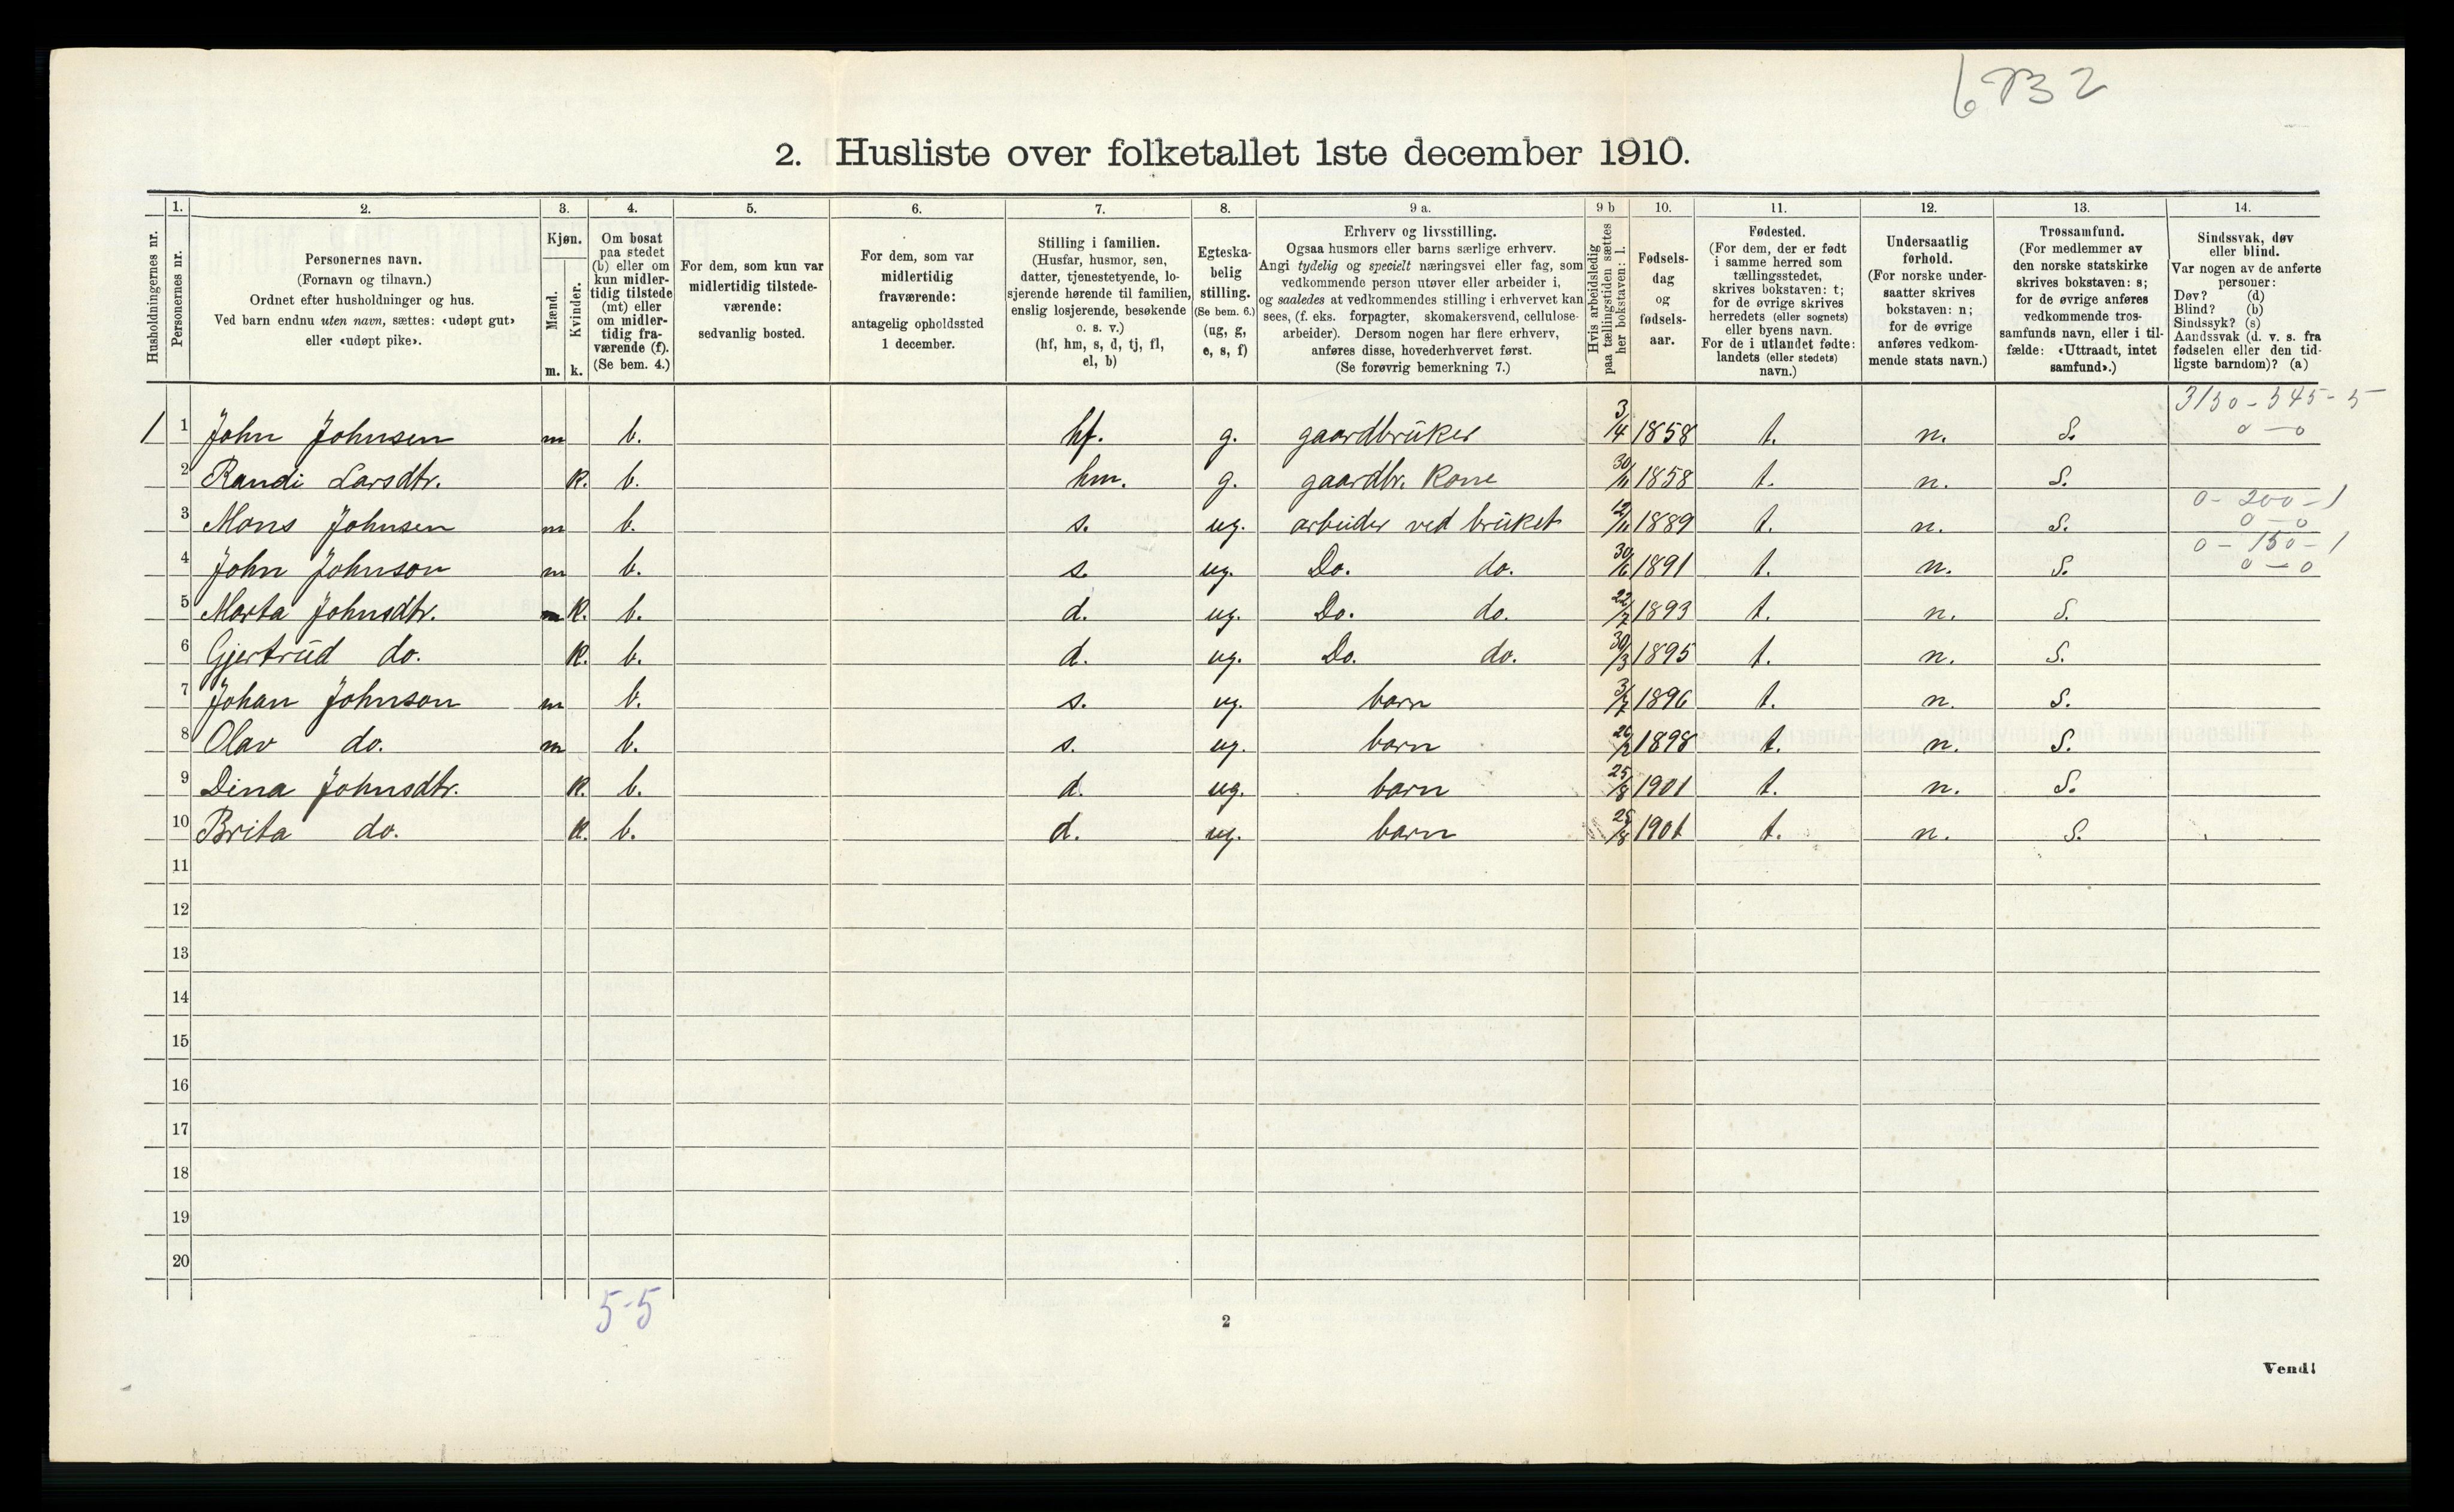 6732
2. Husliste over folketallet 1ste december 1910.
Husholdningernes nr.
1. Personernes nr.
2. Personernes navn. (Fornavn og tilnavn.) Ordnet efter husholdninger og hus. Ved barn endnu uten navn, sættes: «udøpt gut» eller «udøpt pike».
3. Kjøn. Mænd. m. Kvinder. k.
4. Om bosat paa stedet (b) eller om kun midlertidig tilstede (mt) eller om midlertidig fraværende (f). (Se bem. 4.)
5. For dem, som kun var midlertidig tilstedeværende: sedvanlig bosted.
6. For dem, som var midlertidig fraværende: antagelig opholdssted 1 december.
7. Stilling i familien. (Husfar, husmor, søn, datter, tjenestetyende, losjerende hørende til familien, enslig losjerende, besøkende o. s. v.) (hf, hm, s, d, tj, fl, el, b)
8. Egteskabelig stilling. (Se bem. 6.) (ug, g, e, s, f)
9 a. Erhverv og livsstilling. Ogsaa husmors eller barns særlige erhverv. Angi tydelig og specielt næringsvei eller fag, som vedkommende person utøver eller arbeider i, og saaledes at vedkommendes stilling i erhvervet kan sees, (f. eks. forpagter, skomakersvend, cellulosearbeider). Dersom nogen har flere erhverv, anføres disse, hovederhvervet først. (Se forøvrig bemerkning 7.)
9 b Hvis arbeidsledig paa tællingstiden sættes her bokstaven: l.
10. Fødselsdag og fødselsaar.
11. Fødested. (For dem, der er født i samme herred som tællingsstedet, skrives bokstaven: t; for de øvrige skrives herredets (eller sognets) eller byens navn. For de i utlandet fødte: landets (eller stedets) navn.)
12. Undersaatlig forhold. (For norske undersaatter skrives bokstaven: n; for de øvrige anføres vedkommende stats navn.)
13. Trossamfund. (For medlemmer av den norske statskirke skrives bokstaven: s; for de øvrige anføres vedkommende trossamfunds navn, eller i tilfælde: «Uttraadt, intet samfund».)
14. Sindssvak, døv eller blind. Var nogen av de anførte personer: Døv? (d) Blind? (b) Sindssyk? (s) Aandssvak (d. v. s. fra fødselen eller den tidligste barndom)? (a)
3150 - 545 - 5
1 1 John Johnsen m b. hf. g. gaardbruker 3/4 1858 t. n. S. 0 - 0
2 Randi Larsdtr. k. b. hm. g. gaardbr. kone 30/11 1858 t. n. S.
0 - 200 - 1
3 Mons Johnsen m b. s. ug. arbeider ved bruket 12/11 1889 t. n. S. 0 - 0
0 - 150 - 1
4 John Johnson m b. s. ug. Do. do. 30/6 1891 t. n. S. 0 - 0
5 Marta Johnsdtr. k. b. d. ug. Do. do. 22/7 1893 t. n. S.
6 Gjertrud do. k. b. d. ug. Do. do. 30/3 1895 t. n. S.
7 Johan Johnson m b. s. ug. barn 3/7 1896 t. n. S.
8 Olav do. m b. s. ug. barn 1898 t. n. S.
9 Dina Johnsdtr. k. b. d. ug. barn 25/8 1901 t. n. S.
10 Brita do. k. b. d. ug. barn 25/8 1901 t. n. S.
11
12
13
14
15
16
17
18
19
20
5-5
2
Vend!